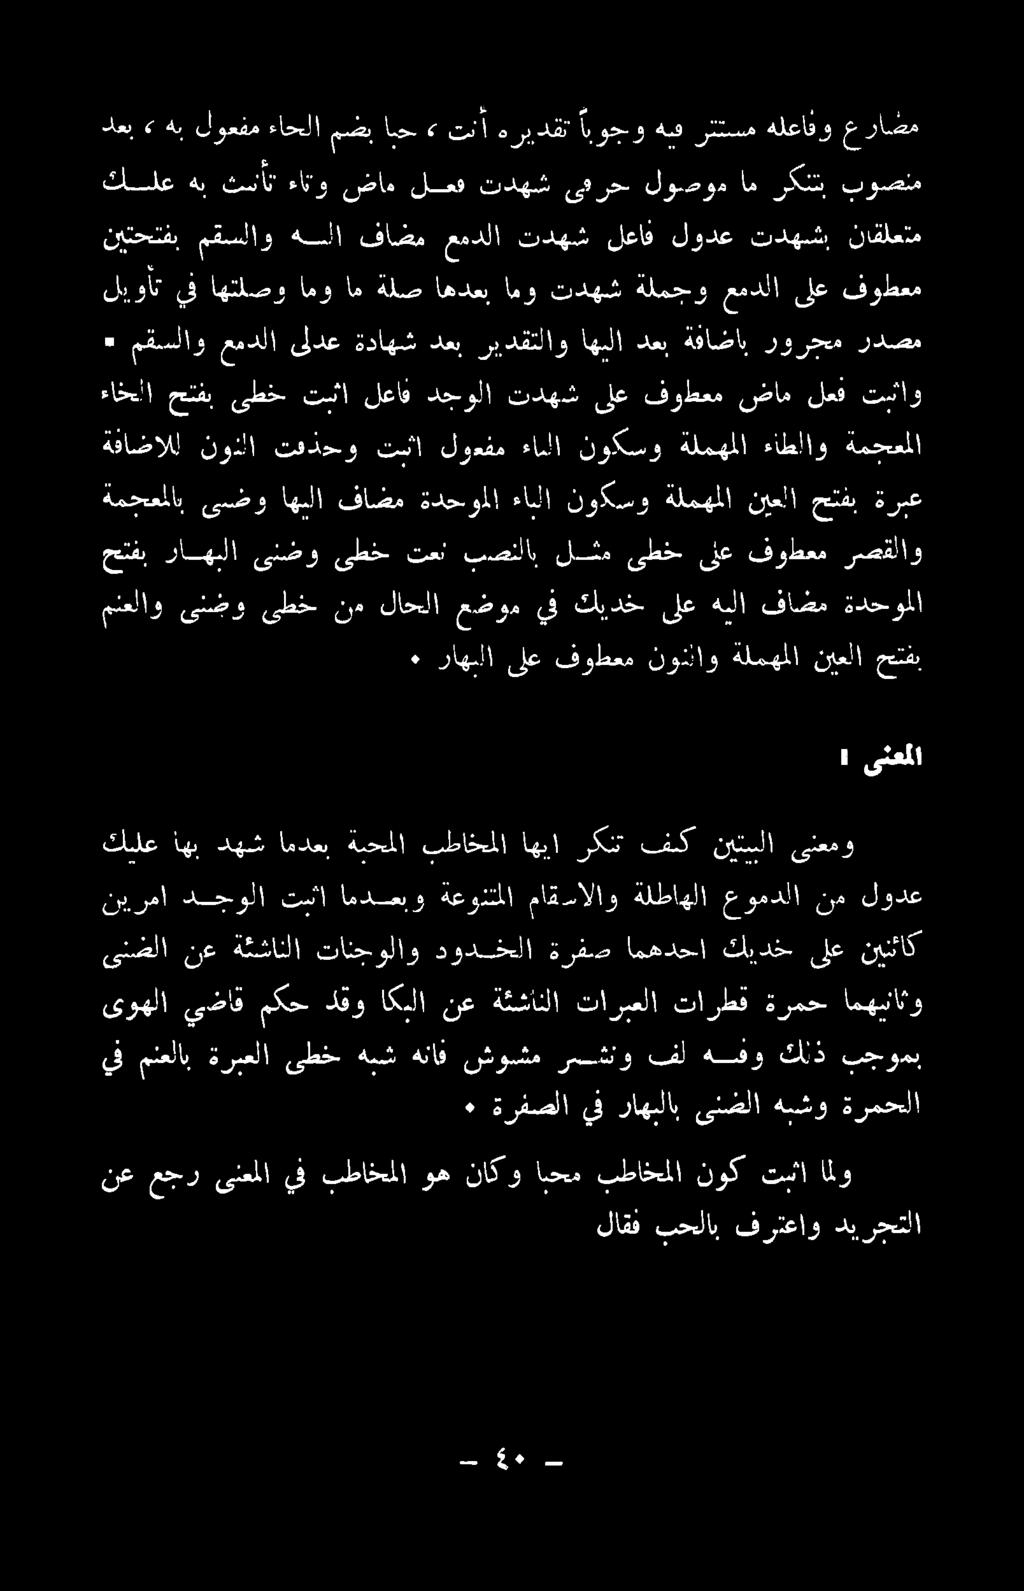 مضارع وفاعله مستتر فيه وجوباً تقديره أنت ، حبا بضم الحاء مفعول به ، بعد
منصوب بتنكر ما موصول حرفى شهدت فعـل ماض وتاء تأنيث به عليـك
متعلقان بشهدت عدول فاعل شهدت الدمع مضاف اليـه والسقم بفتحتين
معطوف على الدمع وجملة شهدت وما بعدها صلة ما وما وصلتها في تأويل
مصدر مجرور باضافة بعد اليها والتقدير بعد شهادة عدلى الدمع والسقم ٠
واثبت فعل ماض معطوف على شهدت الوجد فاعل اثبت خطى بفتح الخاء
المعجمة والطاء المهملة وسكون الياء مفعول اثبت وحذفت النون للاضافة
عبرة بفتح العين المهملة وسكون الباء الموحدة مضاف اليها وضنى بالمعجمة
والقصر معطوف على خطى مثـل بالنصب نعت خطى وضنى البهـار بفتح
الموحدة مضاف اليه على خديك في موضع الحال من خطى وضنى والعنم
بفتح العين المهملة والنون معطوف على البهار ٠
المعنى :
ومعنى البيتين كيف تنكر ايها المخاطب المحبة بعدما شهد بها عليك
عدول من الدموع الهاطلة والاسقام المتنوعة وبعـدما اثبت الوجـد امرين
كائنين على خديك احدهما صفرة الخـدود والوجنات الناشئة عن الضنى
وثانيهما حمرة قطرات العبرات الناشئة عن البكا وقد حكم قاضي الهوى
بموجب ذلك وفـه لف ونشـر مشوش فانه شبه خطى العبرة بالعنم في
الحمرة وشبه الضنى بالبهار في الصفرة ٠
ولما اثبت كون المخاطب محبا وكان هو المخاطب في المعنى رجع عن
التجريد واعترف بالحب فقال
– ٤٠ –